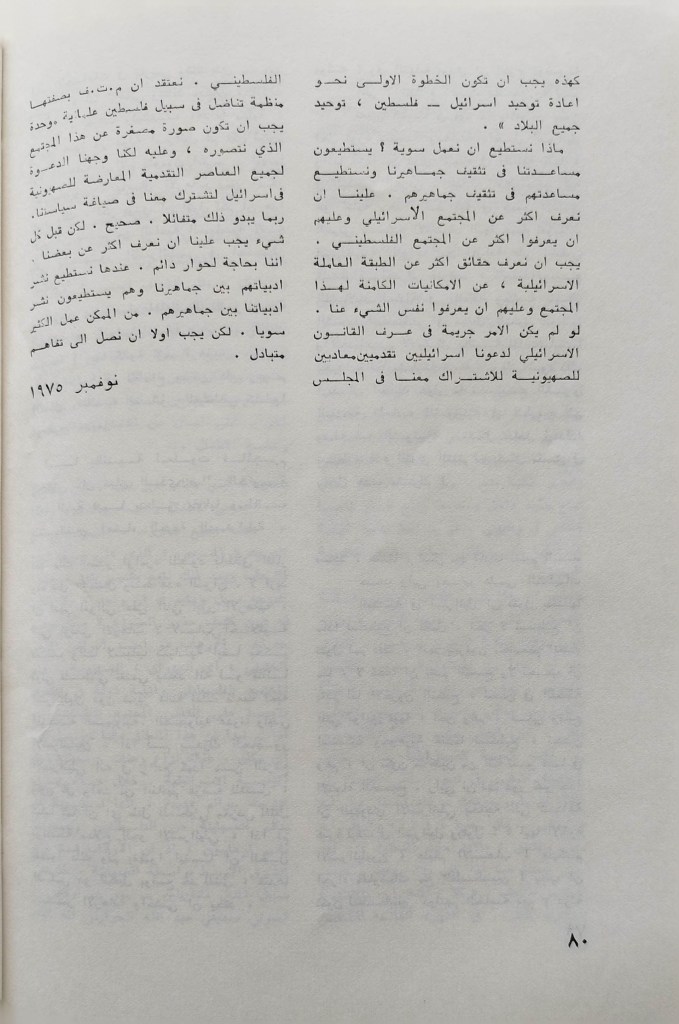 كهذه يجب ان تكون الخطوة الاولى نحو
اعادة توحيد اسرائيل — فلسطين ، توحيد
جميع البلاد » .
ماذا نستطيع ان نعمل سوية ؟ يستطيعون
مساعدتنا في تثقيف جماهيرنا ونستطيع
مساعدتهم في تثقيف جماهيرهم . علينا ان
نعرف اكثر عن المجتمع الاسرائيلي وعليهم
ان يعرفوا اكثر عن المجتمع الفلسطيني .
يجب ان نعرف حقائق اكثر عن الطبقة العاملة
الاسرائيلية ، عن الامكانيات الكامنة لهذا
المجتمع وعليهم ان يعرفوا نفس الشيء عنا .
لو لم يكن الامر جريمة في عرف القانون
الاسرائيلي لدعونا اسرائيليين تقدميين معاديين
للصهيونية للاشتراك معنا في المجلس
الفلسطيني . نعتقد ان م.ت.ف بصفتها
منظمة تناضل في سبيل فلسطين علمانية موحدة
يجب ان تكون صورة مصغرة عن هذا المجتمع
الذي نتصوره ، وعليه لكنا وجهنا الدعوة
لجميع العناصر التقدمية المعارضة للصهيونية
في اسرائيل لتشترك معنا في صياغة سياستنا.
ربما يبدو ذلك متفائلا . صحيح . لكن قبل كل
شيء يجب علينا ان نعرف اكثر عن بعضنا .
اننا بحاجة لحوار دائم . عندها نستطيع نشر
ادبياتهم بين جماهيرنا وهم يستطيعون نشر
ادبياتنا بين جماهيرهم . من الممكن عمل الكثير
سويا . لكن يجب اولا ان نصل الى تفاهم
متبادل .
نوفمبر ١٩٧٥
٨٠